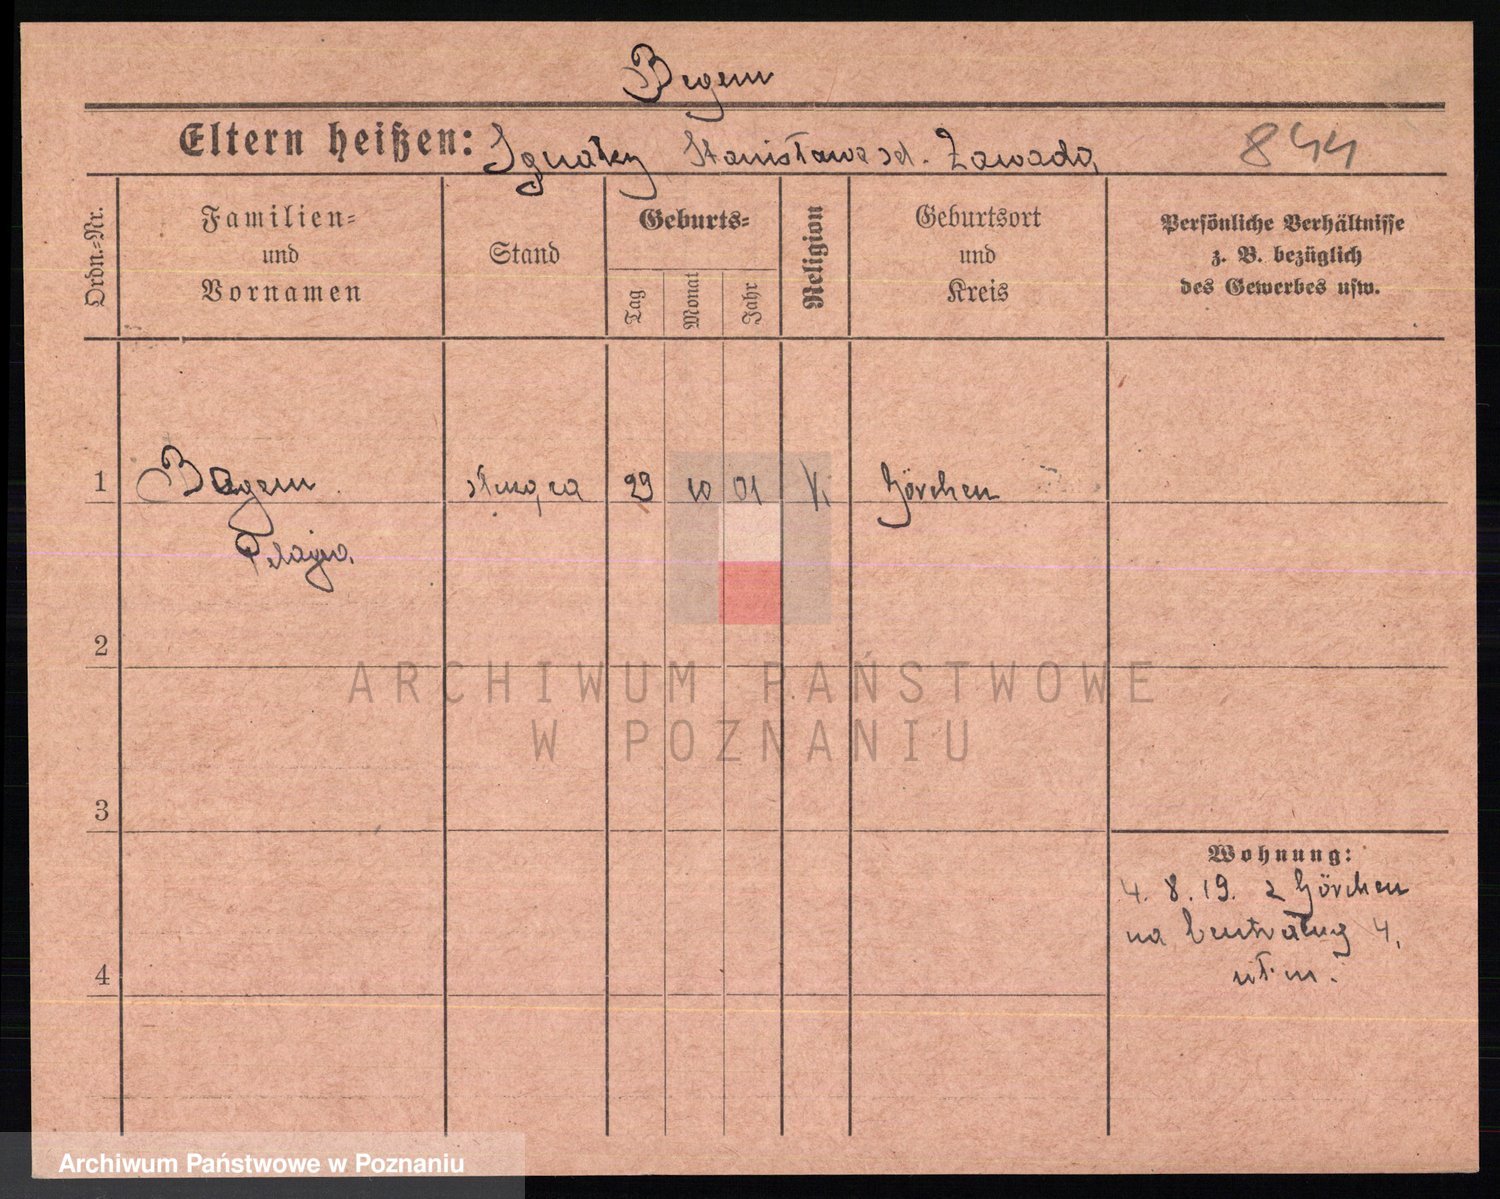 Begem
Eltern heißen: Ignatzy Stanisława zd. Zawada 844
Ordn.-Nr.
Familien-
und
Vornamen
Stand
Geburts-
Tag
Monat
Jahr
Religion
Geburtsort
und
Kreis
Persönliche Verhältnisse
z. B. bezüglich
des Gewerbes usw.
1 Bagem służąca 29 10 01 Görchen
Pelagja
2
3
4
Wohnung:
4. 8. 19. z Görchen
na 4.
ARCHIWUM PAŃSTWOWE
W POZNANIU
Archiwum Państwowe w Poznaniu